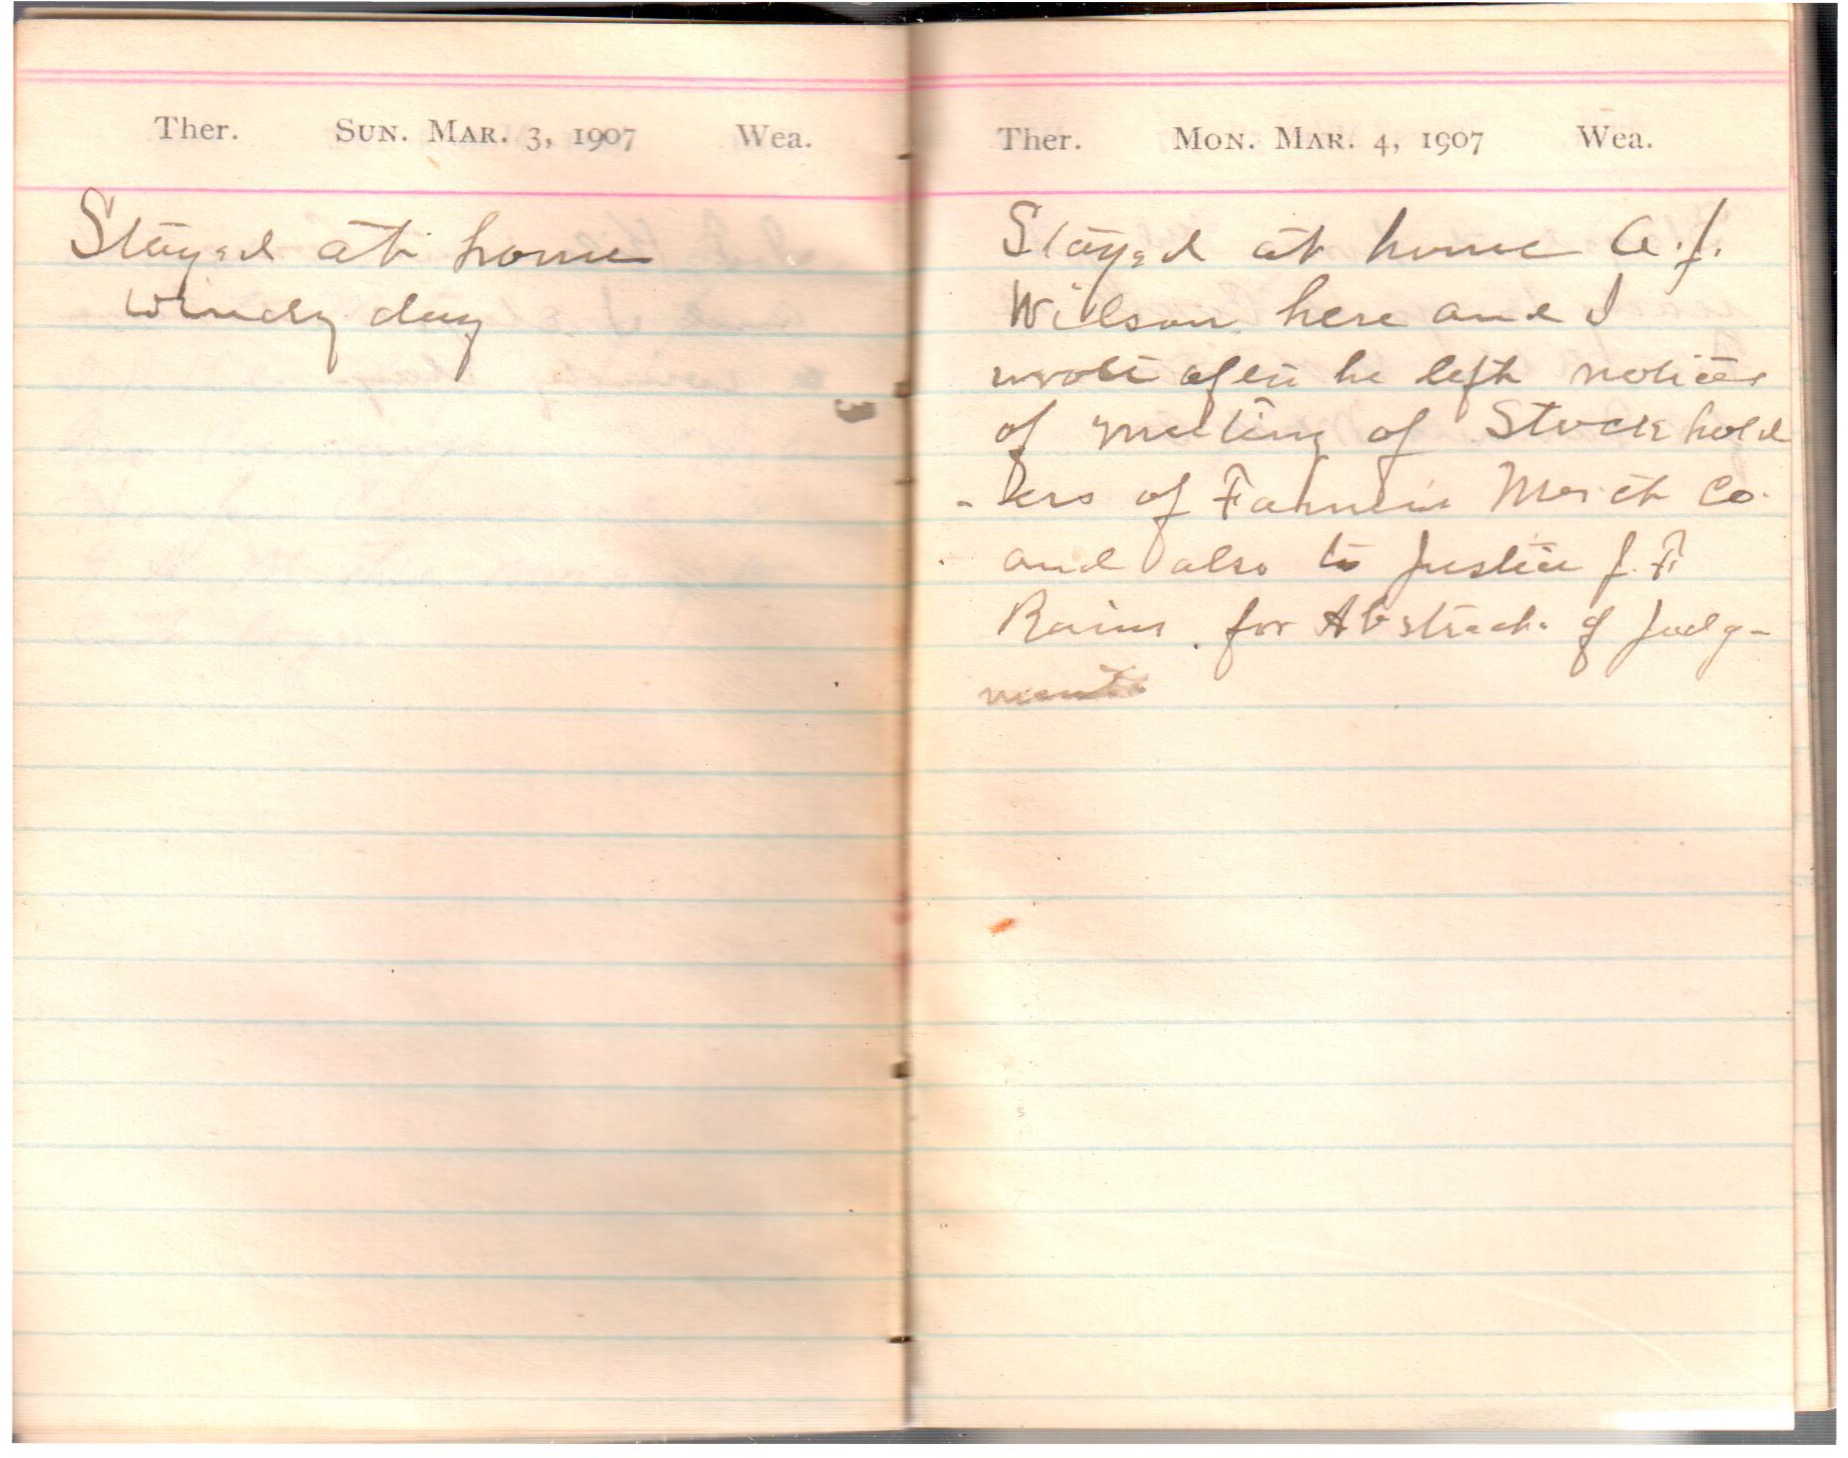 Ther. Sun. Mar. 3, 1907 Wea.
Stayed at home
windy day
Ther. Mon. Mar. 4, 1907 Wea.
Stayed at home A. J.
Wilson here and I
wrote after he left notices
of meeting of Stockhold
-ers of Merct Co.
and also to Justice J. F.
Rains for Abstract of Judg-
ments